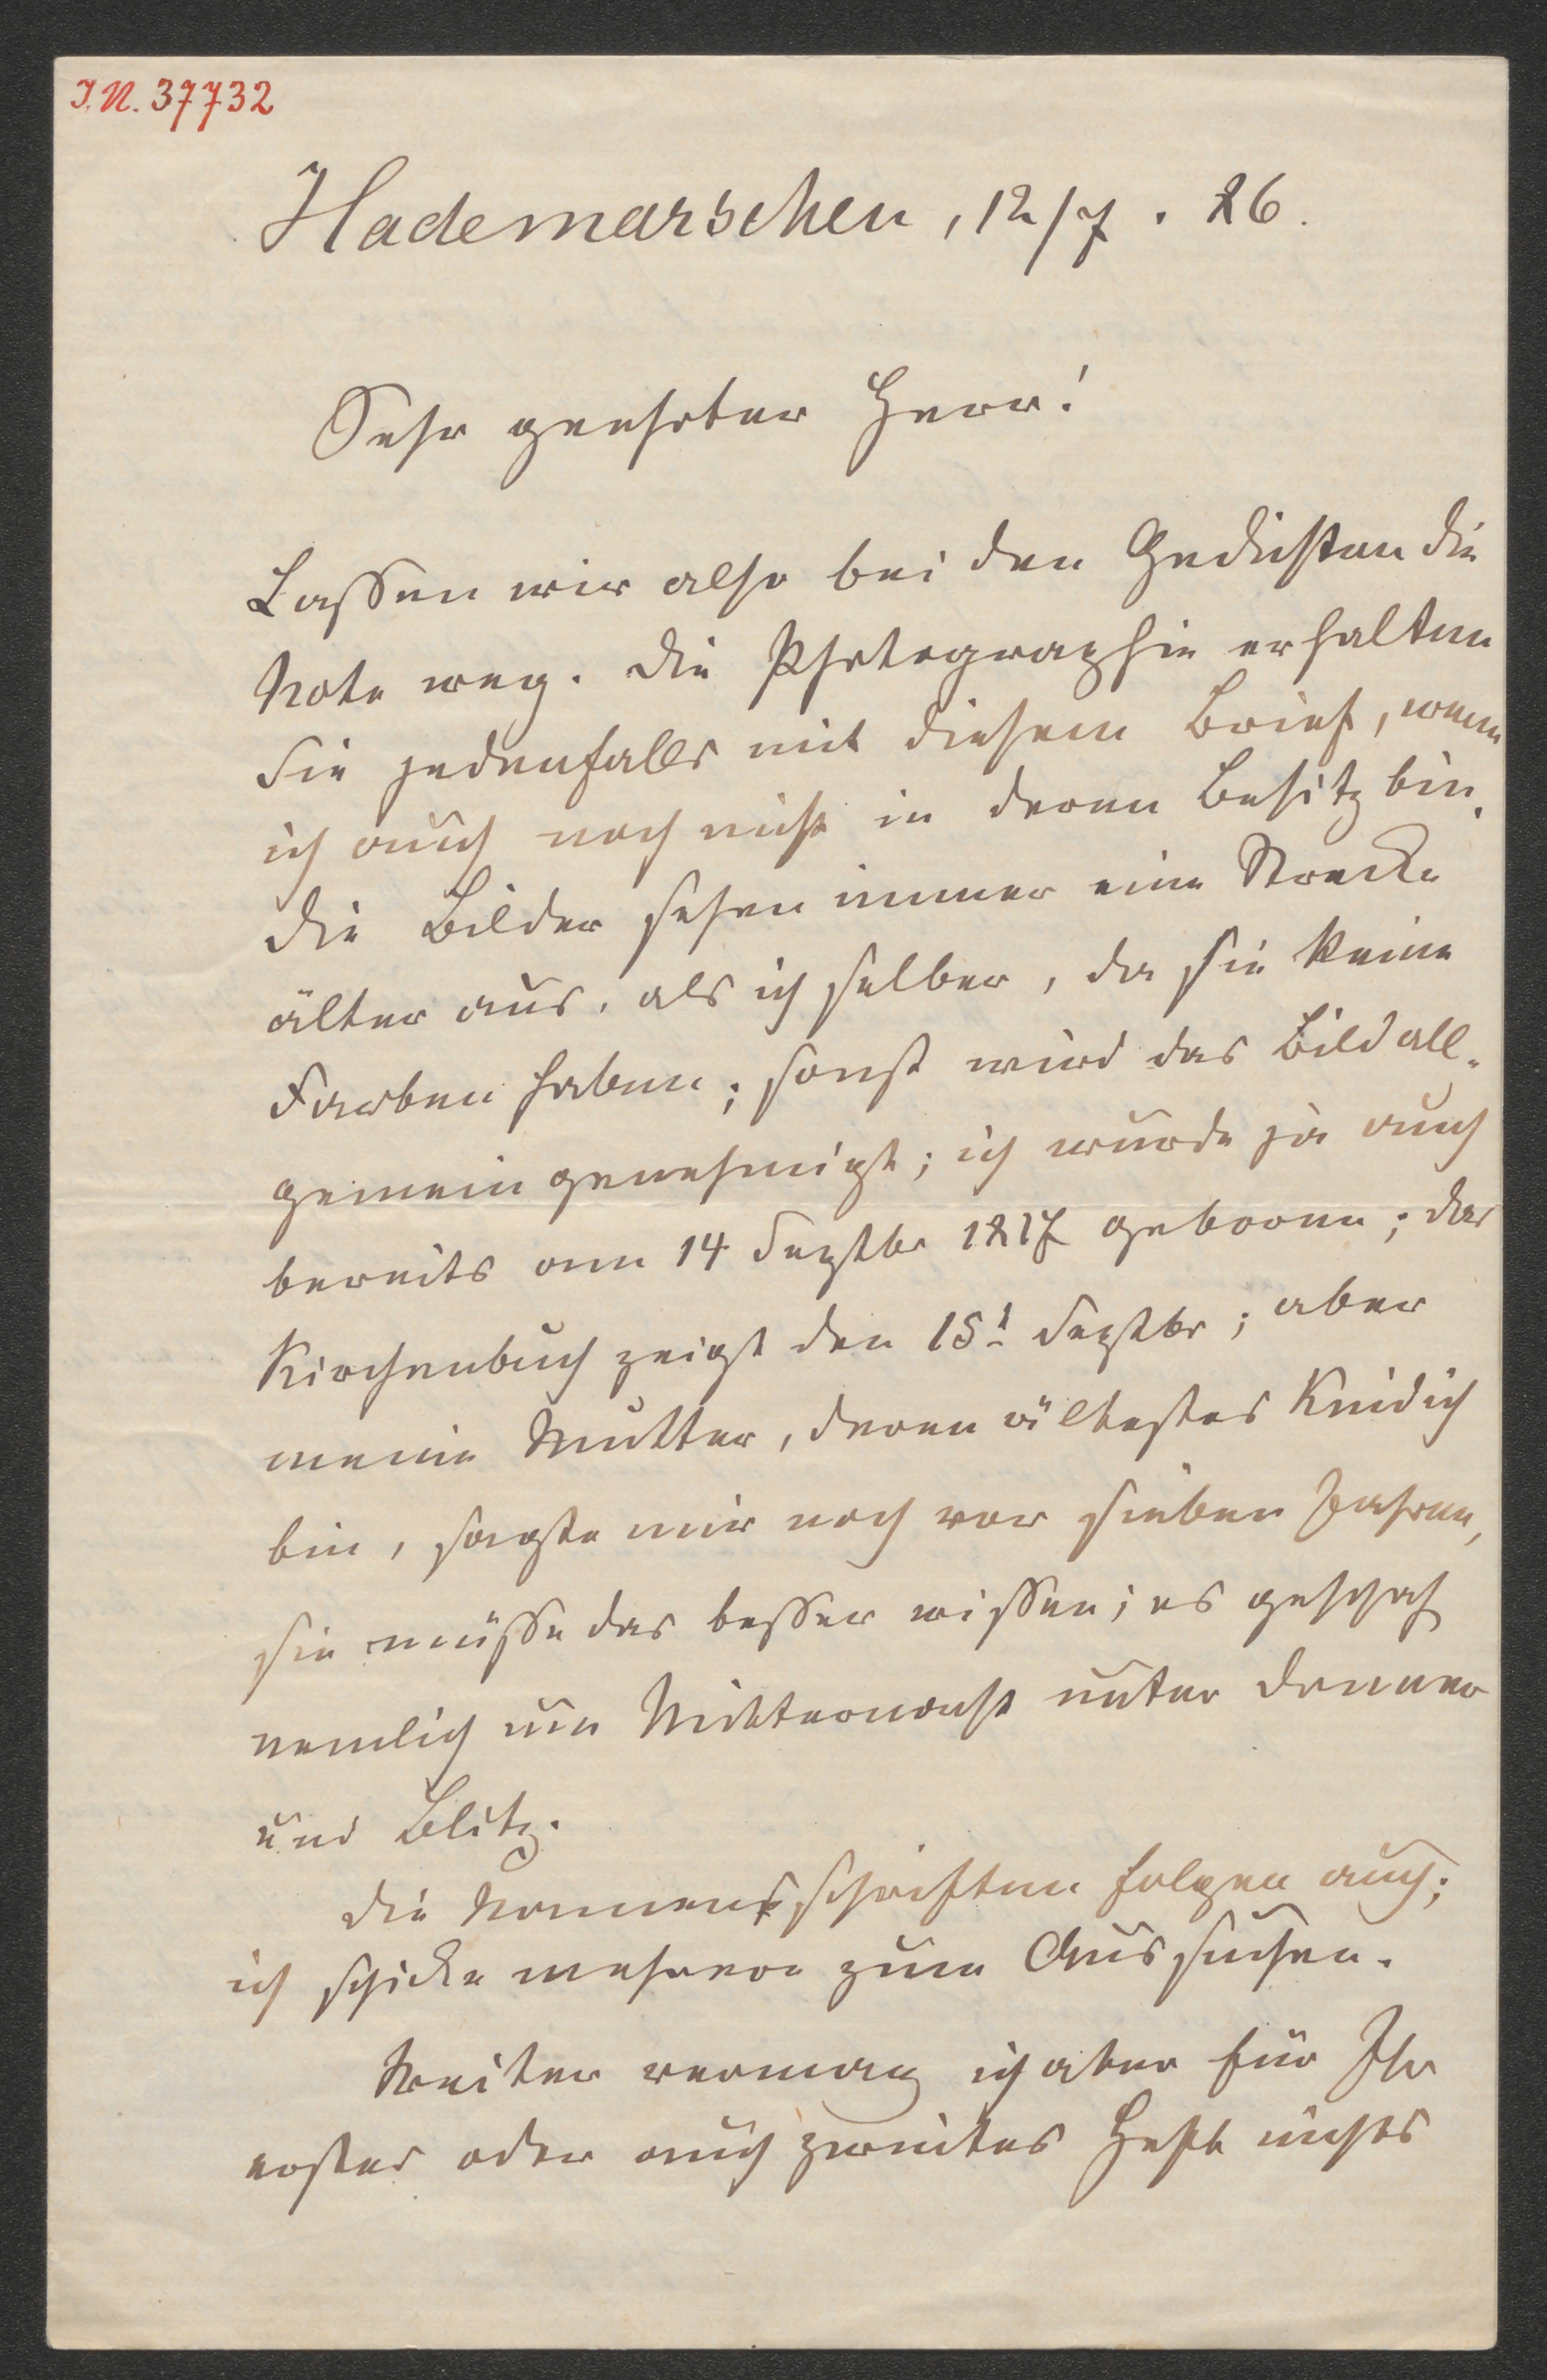 I.N. 37732
Hademarschen, 12/7. 86.
Sehr geehrter Herr!
Lassen wir also bei den Gedichten die
Note weg. Die Photographie erhalten
Sie jedenfalls mit diesem Brief, wenn
ich auch noch nicht in deren Besitz bin.
Die Bilder sehen immer eine Strecke
älter aus, als ich selber, da sie keine
Farben haben; sonst wird das Bild all-
gemein genehmigt; ich wurde ja auch
bereits am 14 Septbr 1817 geboren; das
Kirchenbuch zeigt den 15t Septbr; aber
meine Mutter, deren ältestes Kind ich
bin, sagte mir noch vor sieben Jahren,
sie müsse das besser wissen; es geschah
nemlich um Mitternacht unter Donner
und Blitz.
Die Namensschriften folgen auch;
ich schicke mehrere zum Aussuchen.
Weiter vermag ich aber für Ihr
erstes oder auch zweites Heft nichts